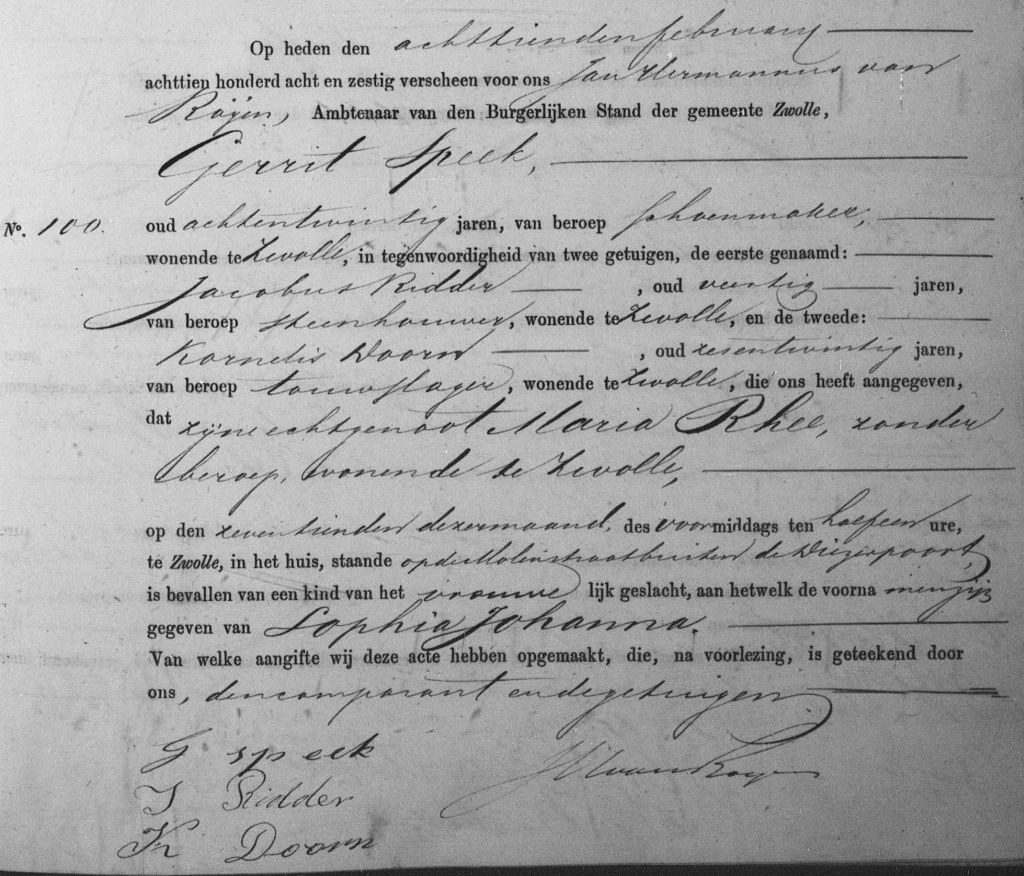 Op heden den achttienden february
achttien honderd acht en zestig verscheen voor ons Jan Hermannus van
Roÿen, Ambtenaar van den Burgerlijken Stand der gemeente Zwolle,
Gerrit Speek,
No. 100. oud achtentwintig jaren, van beroep schoenmaker,
wonende te Zwolle, in tegenwoordigheid van twee getuigen, de eerste genaamd:
Jacobus Ridder, oud veertig jaren,
van beroep steenhouwer, wonende te Zwolle, en de tweede:
Kornelis Doorn, oud zesentwintig jaren,
van beroep touwslager, wonende te Zwolle, die ons heeft aangegeven,
dat zijne echtgenoot Maria Rhee, zonder
beroep, wonende te Zwolle,
op den zeventienden dezer maand, des voormiddags ten half een ure,
te Zwolle, in het huis, staande op de Molenstraat buiten de Diezerpoort,
is bevallen van een kind van het vrouwelijk geslacht, aan hetwelk de voornamen zijn
gegeven van Sophia Johanna.
Van welke aangifte wij deze acte hebben opgemaakt, die, na voorlezing, is geteekend door
ons, den comparant en de getuigen.
G speek
J Ridder JHvanRoyen
K Doorn